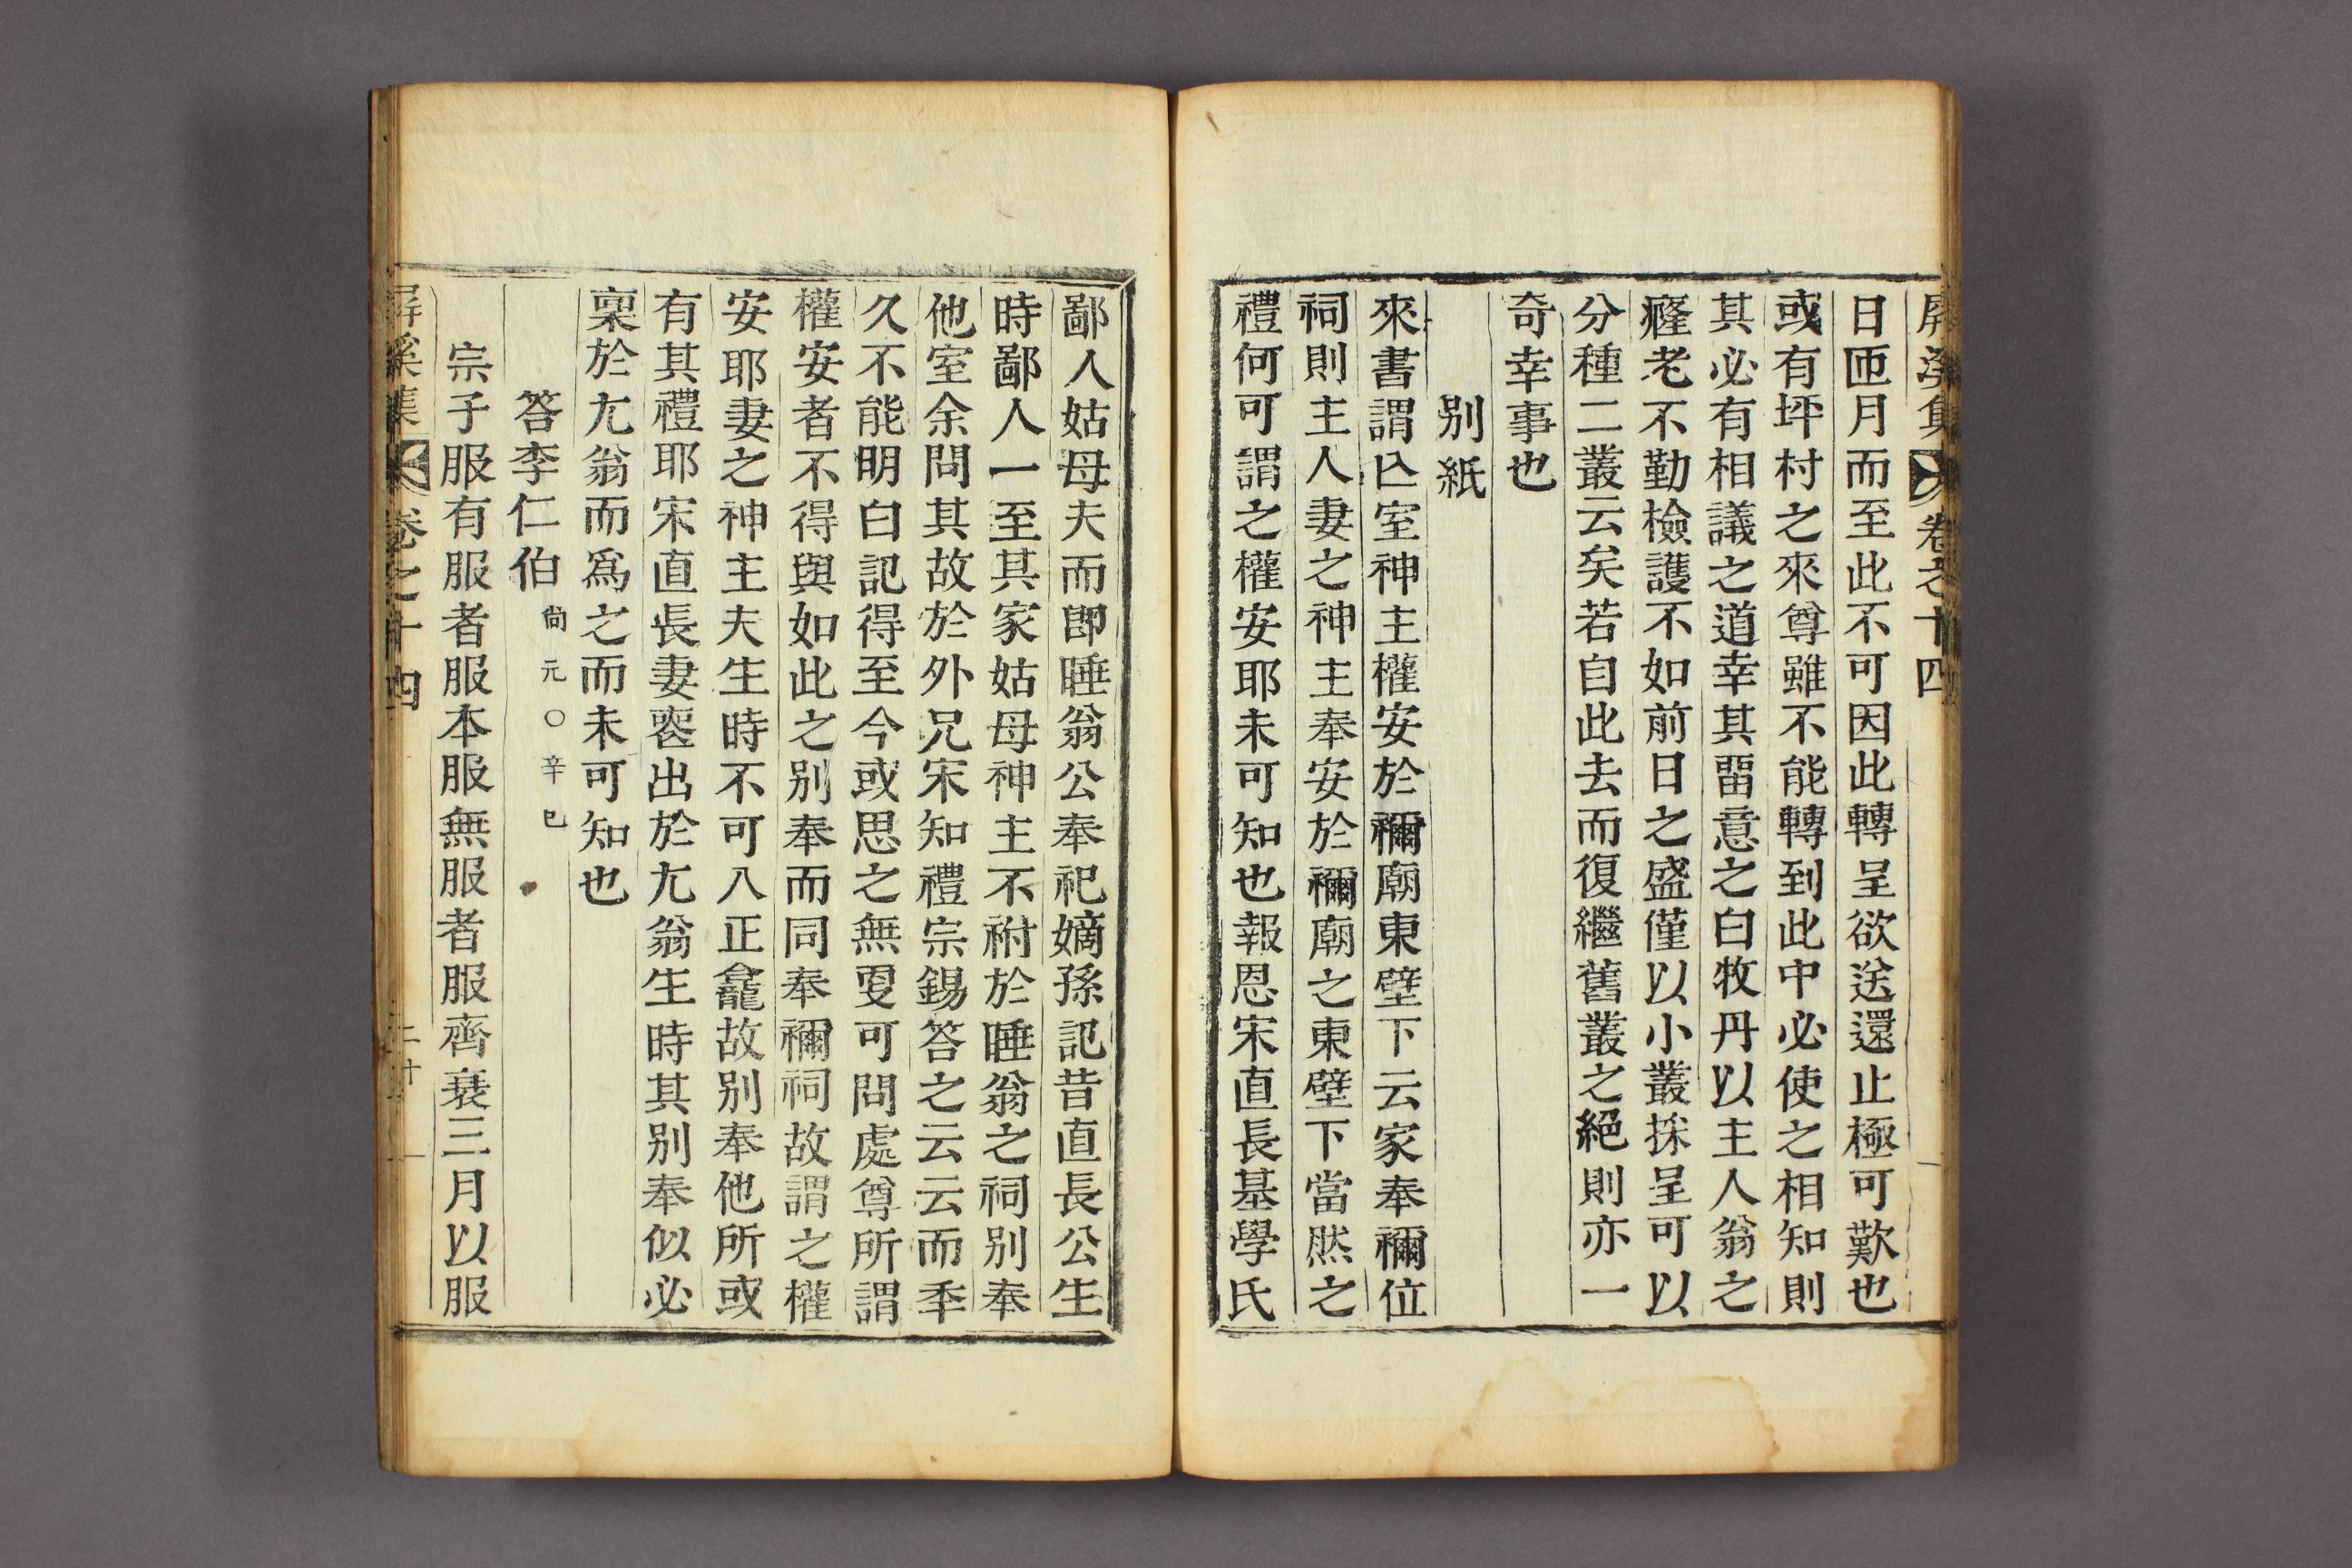 屛溪集 卷之十四
日匝月而至此不可因此轉呈欲送還止極可歎也
或有坪村之來尊雖不能轉到此中必使之相知則
其必有相議之道幸其留意之白牧丹以主人翁之
癃老不勤檢護不如前日之盛僅以小叢採呈可以
分種二叢云矣若自此去而復繼舊叢之絕則亦一
奇幸事也
別紙
來書謂亾室神主權安於禰廟東壁下云家奉禰位
祠則主人妻之神主奉安於禰廟之東壁下當然之
禮何可謂之權安耶未可知也報恩宋直長基學氏
鄙人姑母夫而卽睡翁公奉祀嫡孫記昔直長公生
時鄙人一至其家姑母神主不祔於睡翁之祠別奉
他室余問其故於外兄宋知禮宗錫答之云云而秊
久不能明白記得至今或思之無更可問處尊所謂
權安者不得與如此之別奉而同奉禰祠故謂之權
安耶妻之神主夫生時不可入正龕故別奉他所或
有其禮耶宋直長妻喪出於尤翁生時其別奉似必
稟於尤翁而爲之而未可知也
答李仁伯 尙元○辛巳
宗子服有服者服本服無服者服齊衰三月以服
屛溪集 卷之十四 二十一